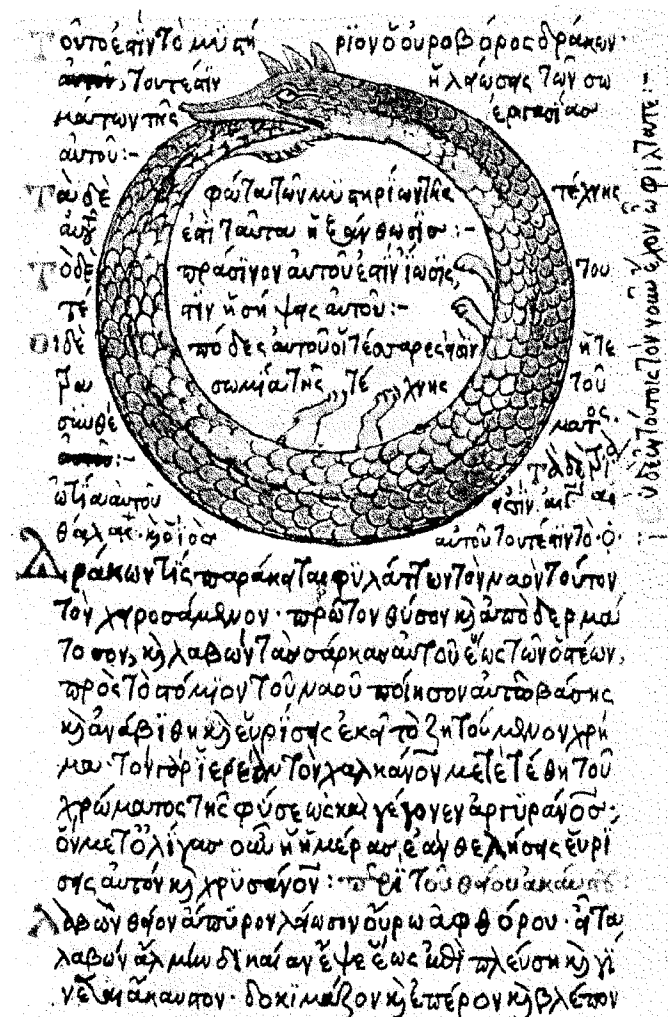 Τοῦτό ἐστιν τὸ μυστήριον ὁ οὐροβόρος δράκων·
τουτέστιν ἡ λείωσις τῶν σω
μάτων τῆς ἐργασίας
αὐτοῦ:-
Τὰ δὲ φῶτα τῶν μυστηρίων τῆς τέχνης
αὐτ ἐστὶ ταῦτα ἡ ξάνθωσις:-
Τὸ δὲ πράσινον αὐτοῦ ἐστὶν ἴωσις, του
τέστιν ἡ σήψις αὐτοῦ:-
Οἱ δὲ πόδες αὐτοῦ οἱ τέσσαρες εἰσὶν ἡ τε
τρα σωμία τῆς τέχνης τοῦ
συνθέματος·
Τὰ δὲ
ὠτία αὐτοῦ εἰσὶν
αὐτοῦ τουτέστιν τὸ
Δράκων τίς παράκειται φυλάττων τὸν ναὸν τοῦτον
τὸν χειροσάμενον· πρῶτον θύσον καὶ ἀποδερμά
τοσον, καὶ λαβὼν τὰς σάρκας αὐτοῦ ἕως τῶν ὀστέων,
πρὸς τὸ στόμιον τοῦ ναοῦ ποίησον αὐτῶ βάσις
καὶ ἀνάβιθη καὶ εὑρίσεις ἐκεῖ τὸ ζητούμενον χρῆ
μα· τὸν γὰρ ἱερέαν τὸν χαλκάνον μετετέθη τοῦ
χρώματος τῆς φύσεως καὶ γέγονεν ἀργυράνος·
ὃν μετ' ὀλίγας οὖν ἡμέρας, ἐὰν θελήσης εὑρί
σεις αὐτὸν καὶ χρυσάνον:- περὶ τοῦ θείου ἀκαύστ
Λαβὼν θεῖον ἄπυρον λείωσον οὔρω ἀφθόρου· εἶτα
λαβὼν ἅλμην δικαίαν ἕψε ἕως ἐπιπλεύση καὶ γί
νεται ἄκαυστον· δοκίμαζον καὶ ἕτερον καὶ βλέπον
ἐν τούτοις τὸν νοῦν ἔχον ὦ φίλτατε:-